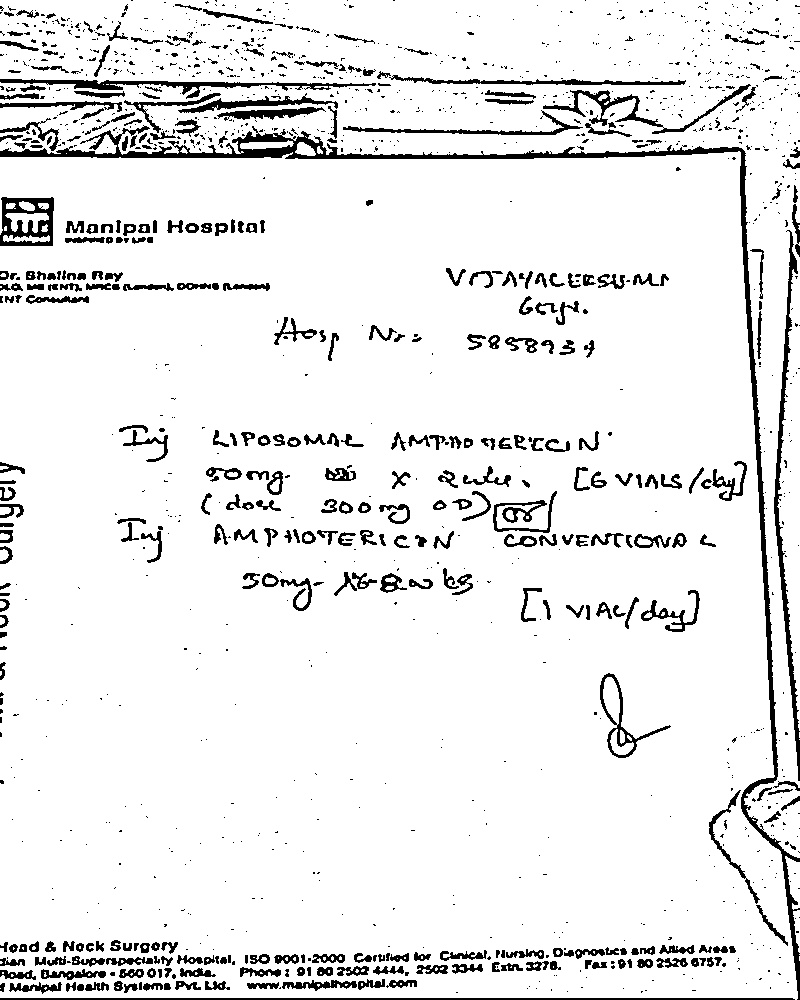 Manipal Hospital
INSPIRED BY LIFE
Dr. Shalina Ray
DLO, MS (ENT), MRCS (London), DOHNS (London)
ENT Consultant
Hosp No:
Inj LIPOSOMAL AMPHOTERICIN
50mg x 2wks. [6 VIALS/day]
(dose 300mg OD) or
Inj AMPHOTERICIN CONVENTIONAL
50mg
[1 VIAL/day]
& Neck Surgery
Head & Neck Surgery
Multi-Superspeciality Hospital, ISO 9001-2000 Certified for Clinical, Nursing, Diagnostics and Allied Areas
Road, Bangalore - 560 017, India. Phone : 91 80 2502 4444, 2502 3344 Extn. 3278. Fax : 91 80 2526 6757.
Manipal Health Systems Pvt. Ltd. www.manipalhospital.com